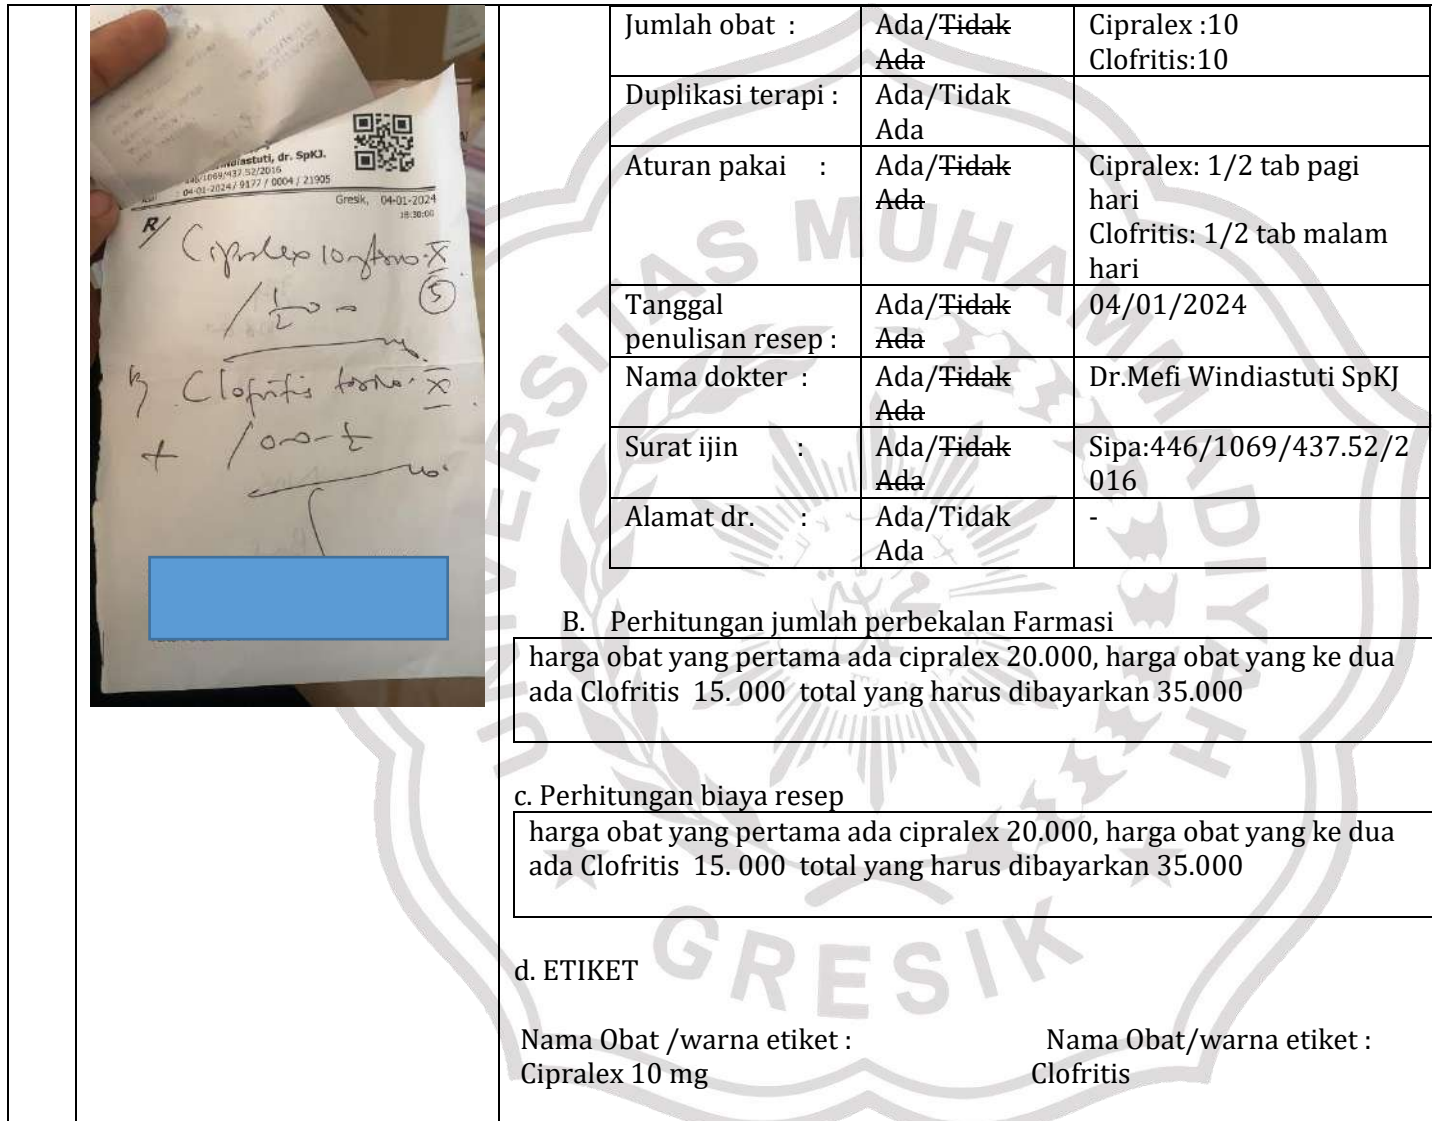 ndiastuti, dr. SpKJ.
446/1069/437.52/2016
: 04-01-2024 / 9177 / 0004 / 21905
Gresik, 04-01-2024
18:30:00
R/
Cipralex 10 X
/ 1/2 5
R/ Clofritis X
+ / 0-0-1/2
Jumlah obat :
Ada/Tidak
Ada
Cipralex :10
Clofritis:10
Duplikasi terapi :
Ada/Tidak
Ada
Aturan pakai :
Ada/Tidak
Ada
Cipralex: 1/2 tab pagi
hari
Clofritis: 1/2 tab malam
hari
Tanggal
penulisan resep :
Ada/Tidak
Ada
04/01/2024
Nama dokter :
Ada/Tidak
Ada
Dr.Mefi Windiastuti SpKJ
Surat ijin :
Ada/Tidak
Ada
Sipa:446/1069/437.52/2
016
Alamat dr. :
Ada/Tidak
Ada
-
B. Perhitungan jumlah perbekalan Farmasi
harga obat yang pertama ada cipralex 20.000, harga obat yang ke dua
ada Clofritis 15. 000 total yang harus dibayarkan 35.000
c. Perhitungan biaya resep
harga obat yang pertama ada cipralex 20.000, harga obat yang ke dua
ada Clofritis 15. 000 total yang harus dibayarkan 35.000
d. ETIKET
Nama Obat /warna etiket :
Cipralex 10 mg
Nama Obat/warna etiket :
Clofritis
UNIVERSITAS MUHAMMADIYAH
GRESIK